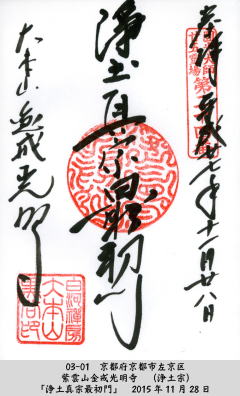 奉拝 平成廿七年十一月廿八日
浄土真宗最初門
大本山 金戒光明寺
白河禅房
大本山
03-01 京都府京都市左京区
紫雲山金戒光明寺 (浄土宗)
「浄土真宗最初門」 2015年11月28日